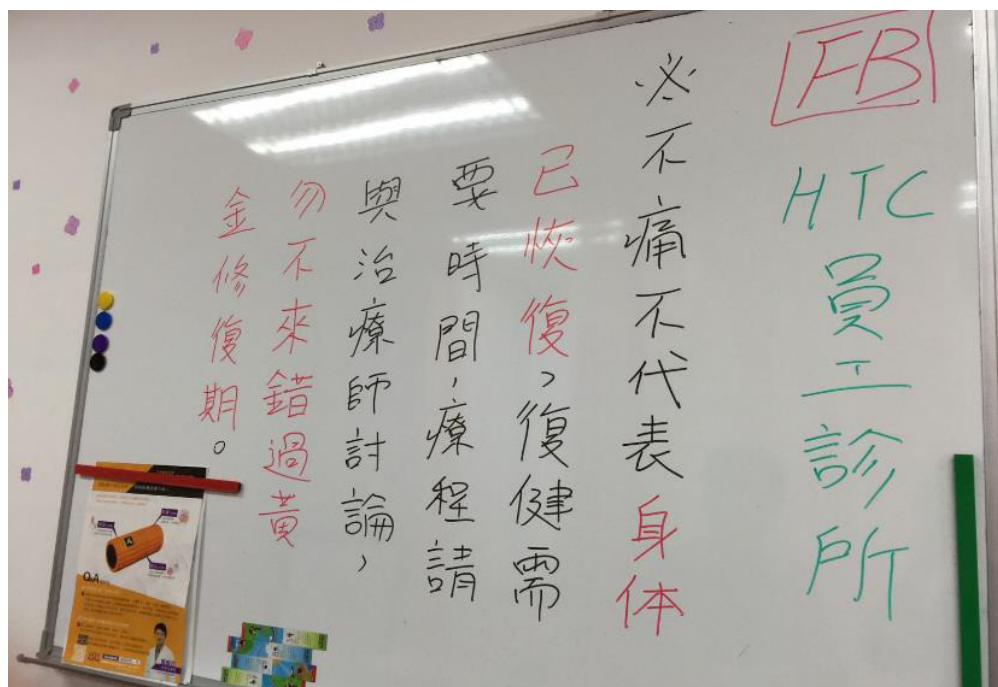 FB
HTC員工診所
※不痛不代表身体
已恢復，復健需
要時間，療程請
與治療師討論，
勿不來錯過黃
金修復期。
Q&A